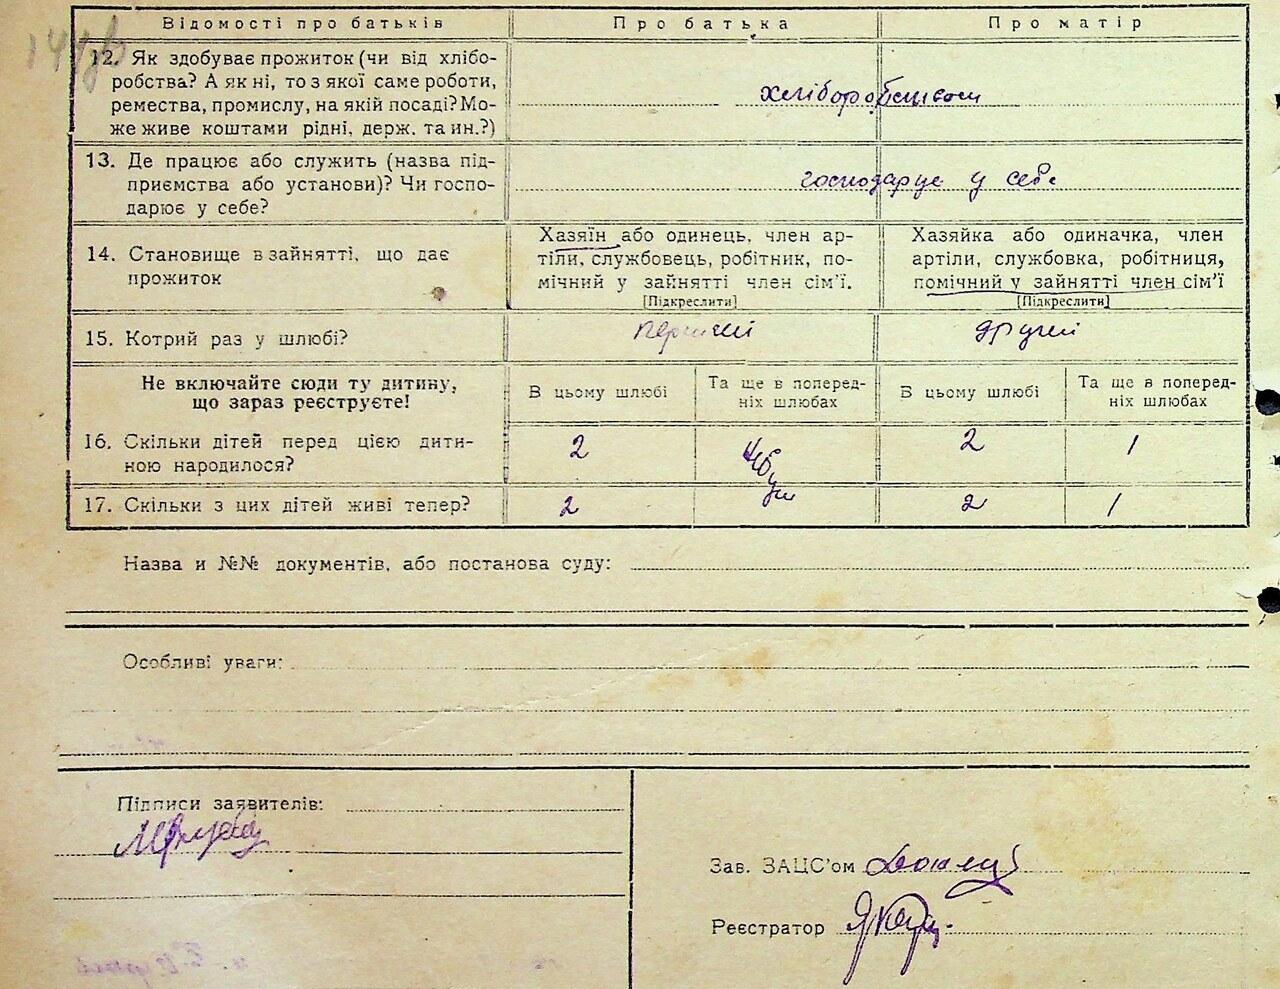 Відомості про батьків Про батька Про матір
12. Як здобуває прожиток (чи від хлібо-
робства? А як ні, то з якої саме роботи,
ремества, промислу, на якій посаді? Мо-
же живе коштами рідні, держ. та ин.?)
хліборобством
13. Де працює або служить (назва під-
приємства або установи)? Чи госпо-
дарює у себе?
господарує у себе
14. Становище в зайнятті, що дає
прожиток
Хазяїн або одинець, член ар-
тіли, службовець, робітник, по-
мічний у зайнятті член сім'ї.
[Підкреслити]
Хазяйка або одиначка, член
артіли, службовка, робітниця,
помічний у зайнятті член сім'ї
[Підкреслити]
15. Котрий раз у шлюбі? перший другий
Не включайте сюди ту дитину,
що зараз реєструєте!
В цьому шлюбі
Та ще в поперед-
ніх шлюбах
В цьому шлюбі
Та ще в поперед-
ніх шлюбах
16. Скільки дітей перед цією дити-
ною народилося?
2 2 1
17. Скільки з цих дітей живі тепер? 2 2 1
Назва и №№ документів, або постанова суду:
Особливі уваги:
Підписи заявителів:
Зав. ЗАЦС'ом
Реєстратор